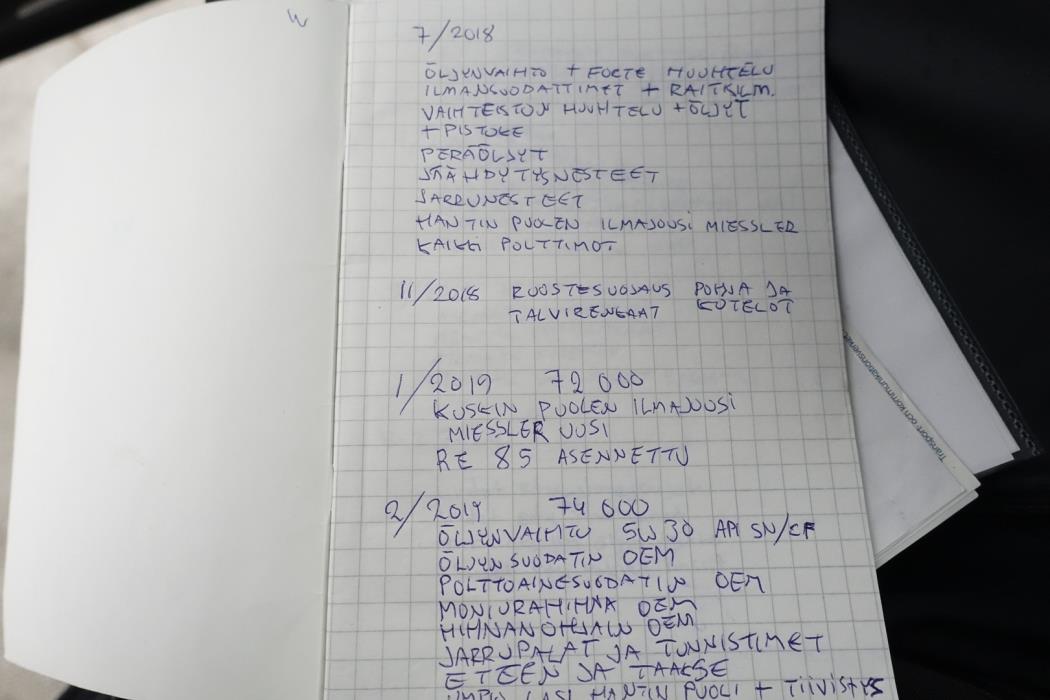 7/2018
ÖLJYNVAIHTO + FORTE HUUHTELU
ILMANSUODATTIMET + RAITISILM.
VAIHTEISTON HUUHTELU + ÖLJYT
+ PISTOKE
PERÄÖLJYT
JÄÄHDYTYSNESTEET
JARRUNESTEET
HANTIN PUOLEN ILMAJOUSI MIESSLER
KAIKKI POLTTIMOT
11/2018 RUOSTESUOJAUS POHJA JA
TALVIRENKAAT KOTELOT
1/2019 72 000
KUSKIN PUOLEN ILMAJOUSI
MIESSLER UUSI
RE 85 ASENNETTU
2/2019 74 000
ÖLJYNVAIHTO 5W30 API SN/CF
ÖLJYNSUODATIN OEM
POLTTOAINESUODATIN OEM
MONIURAHIHNA OEM
HIHNANOHJAIN OEM
JARRUPALAT JA TUNNISTIMET
ETEEN JA TAAKSE
UMPIO LASI HANTIN PUOLI + TIIVISTYS
Transport och kommunikationsverket